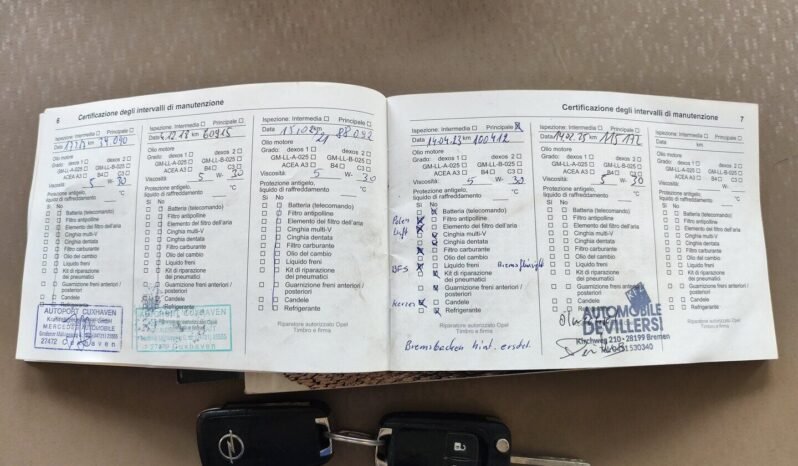 6
Certificazione degli intervalli di manutenzione
Ispezione: Intermedia Principale
Data km 34.090
Olio motore
Grado: dexos 1 dexos 2
GM-LL-A-025 GM-LL-B-025
ACEA A3 B4 C3
Viscosità: 5 W- 30
Protezione antigelo, liquido di raffreddamento °C
Si No
Batteria (telecomando)
Filtro antipolline
Elemento del filtro dell'aria
Cinghia multi-V
Cinghia dentata
Filtro carburante
Olio del cambio
Liquido freni
Kit di riparazione
dei pneumatici
Guarnizione freni anteriori /
posteriori
Candele
Refrigerante
AUTOPORT CUXHAVEN
MERCEDES AUTOMOBILE
27472 Cuxhaven
Ispezione: Intermedia Principale
Data 4.12.18 km 60915
Olio motore
Grado: dexos 1 dexos 2
GM-LL-A-025 GM-LL-B-025
ACEA A3 B4 C3
Viscosità: 5 W- 30
Protezione antigelo, liquido di raffreddamento °C
Si No
Batteria (telecomando)
Filtro antipolline
Elemento del filtro dell'aria
Cinghia multi-V
Cinghia dentata
Filtro carburante
Olio del cambio
Liquido freni
Kit di riparazione
dei pneumatici
Guarnizione freni anteriori /
posteriori
Candele
AUTOPORT CUXHAVEN
27472 Cuxhaven
Ispezione: Intermedia Principale
Data km 88.092
21
Olio motore
Grado: dexos 1 dexos 2
GM-LL-A-025 GM-LL-B-025
ACEA A3 B4 C3
Viscosità: 5 W- 30
Protezione antigelo,
liquido di raffreddamento °C
Si No
Batteria (telecomando)
Filtro antipolline
Elemento del filtro dell'aria
Cinghia multi-V
Cinghia dentata
Filtro carburante
Olio del cambio
Liquido freni
Kit di riparazione
dei pneumatici
Guarnizione freni anteriori /
posteriori
Candele
Refrigerante
Riparatore autorizzato Opel
Timbro e firma
Certificazione degli intervalli di manutenzione
7
Ispezione: Intermedia Principale
Data 14.04.23 km 100412
Olio motore
Grado: dexos 1 dexos 2
GM-LL-A-025 GM-LL-B-025
ACEA A3 B4 C3
Viscosità: 5 W- 30
Protezione antigelo,
liquido di raffreddamento °C
Si No
Batteria (telecomando)
Pollen Filtro antipolline
Luft Elemento del filtro dell'aria
Cinghia multi-V
Cinghia dentata
Filtro carburante
Olio del cambio
BFS Liquido freni
Kit di riparazione
dei pneumatici
Guarnizione freni anteriori /
posteriori
Kerzen Candele
Refrigerante
Riparatore autorizzato Opel
Timbro e firma
Bremsbacken hint. ersetzt.
Ispezione: Intermedia Principale
Data 14.02.25 km 115172
Olio motore
Grado: dexos 1 dexos 2
GM-LL-A-025 GM-LL-B-025
ACEA A3 B4 C3
Viscosità: 5 W- 30
Protezione antigelo,
liquido di raffreddamento °C
Si No
Batteria (telecomando)
Filtro antipolline
Elemento del filtro dell'aria
Cinghia multi-V
Cinghia dentata
Filtro carburante
Olio del cambio
Bremsflüssigk. Liquido freni
Kit di riparazione
dei pneumatici
Guarnizione freni anteriori /
posteriori
Candele
AUTOMOBILE
DEVILLERS!
Kirchweg 210 - 28199 Bremen
530340
Ispezione: Intermedia Principale
Data km
Olio motore
Grado: dexos 1 dexos 2
GM-LL-A-025 GM-LL-B-025
ACEA A3 B4 C3
Viscosità: W-
Protezione antigelo,
liquido di raffreddamento °C
Si No
Batteria (telecomando)
Filtro antipolline
Elemento del filtro dell'aria
Cinghia multi-V
Cinghia dentata
Filtro carburante
Olio del cambio
Liquido freni
Kit di riparazione
dei pneumatici
Guarnizione freni anteriori /
posteriori
Candele
Refrigerante
Riparatore autorizzato Opel
Timbro e firma